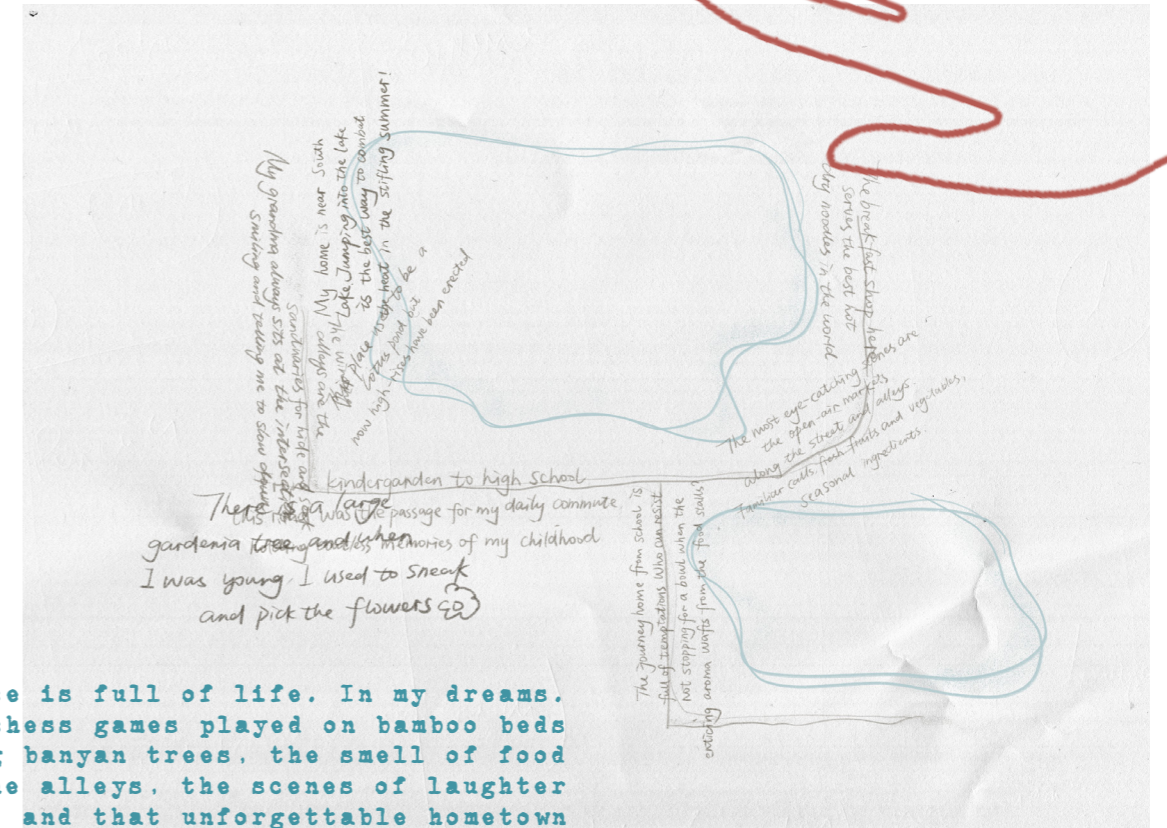 My grandma always sits at the intersection
smiling and telling me to slow down
sanctuaries for hide and seek
alleys are the
The winding
My home is near South
Lake. Jumping into the lake
is the best way to combat
the heat in the stifling summer!
This place used to be a
lotus pond but
now high-rises have been erected
The breakfast shop here
serves the best hot
dry noodles in the world
The most eye-catching zones are
the open-air markets
along the street and alleys.
familiar calls, fresh fruits and vegetables,
seasonal ingredients.
kindergarden to high school
this road was the passage for my daily commute,
holding countless memories of my childhood
There is a large
gardenia tree and when
I was young, I used to sneak
and pick the flowers
The journey home from school is
full of temptations. Who can resist
not stopping for a bowl when the
enticing aroma wafts from the food stalls?
e is full of life. In my dreams,
chess games played on bamboo beds
banyan trees, the smell of food
e alleys, the scenes of laughter
and that unforgettable hometown